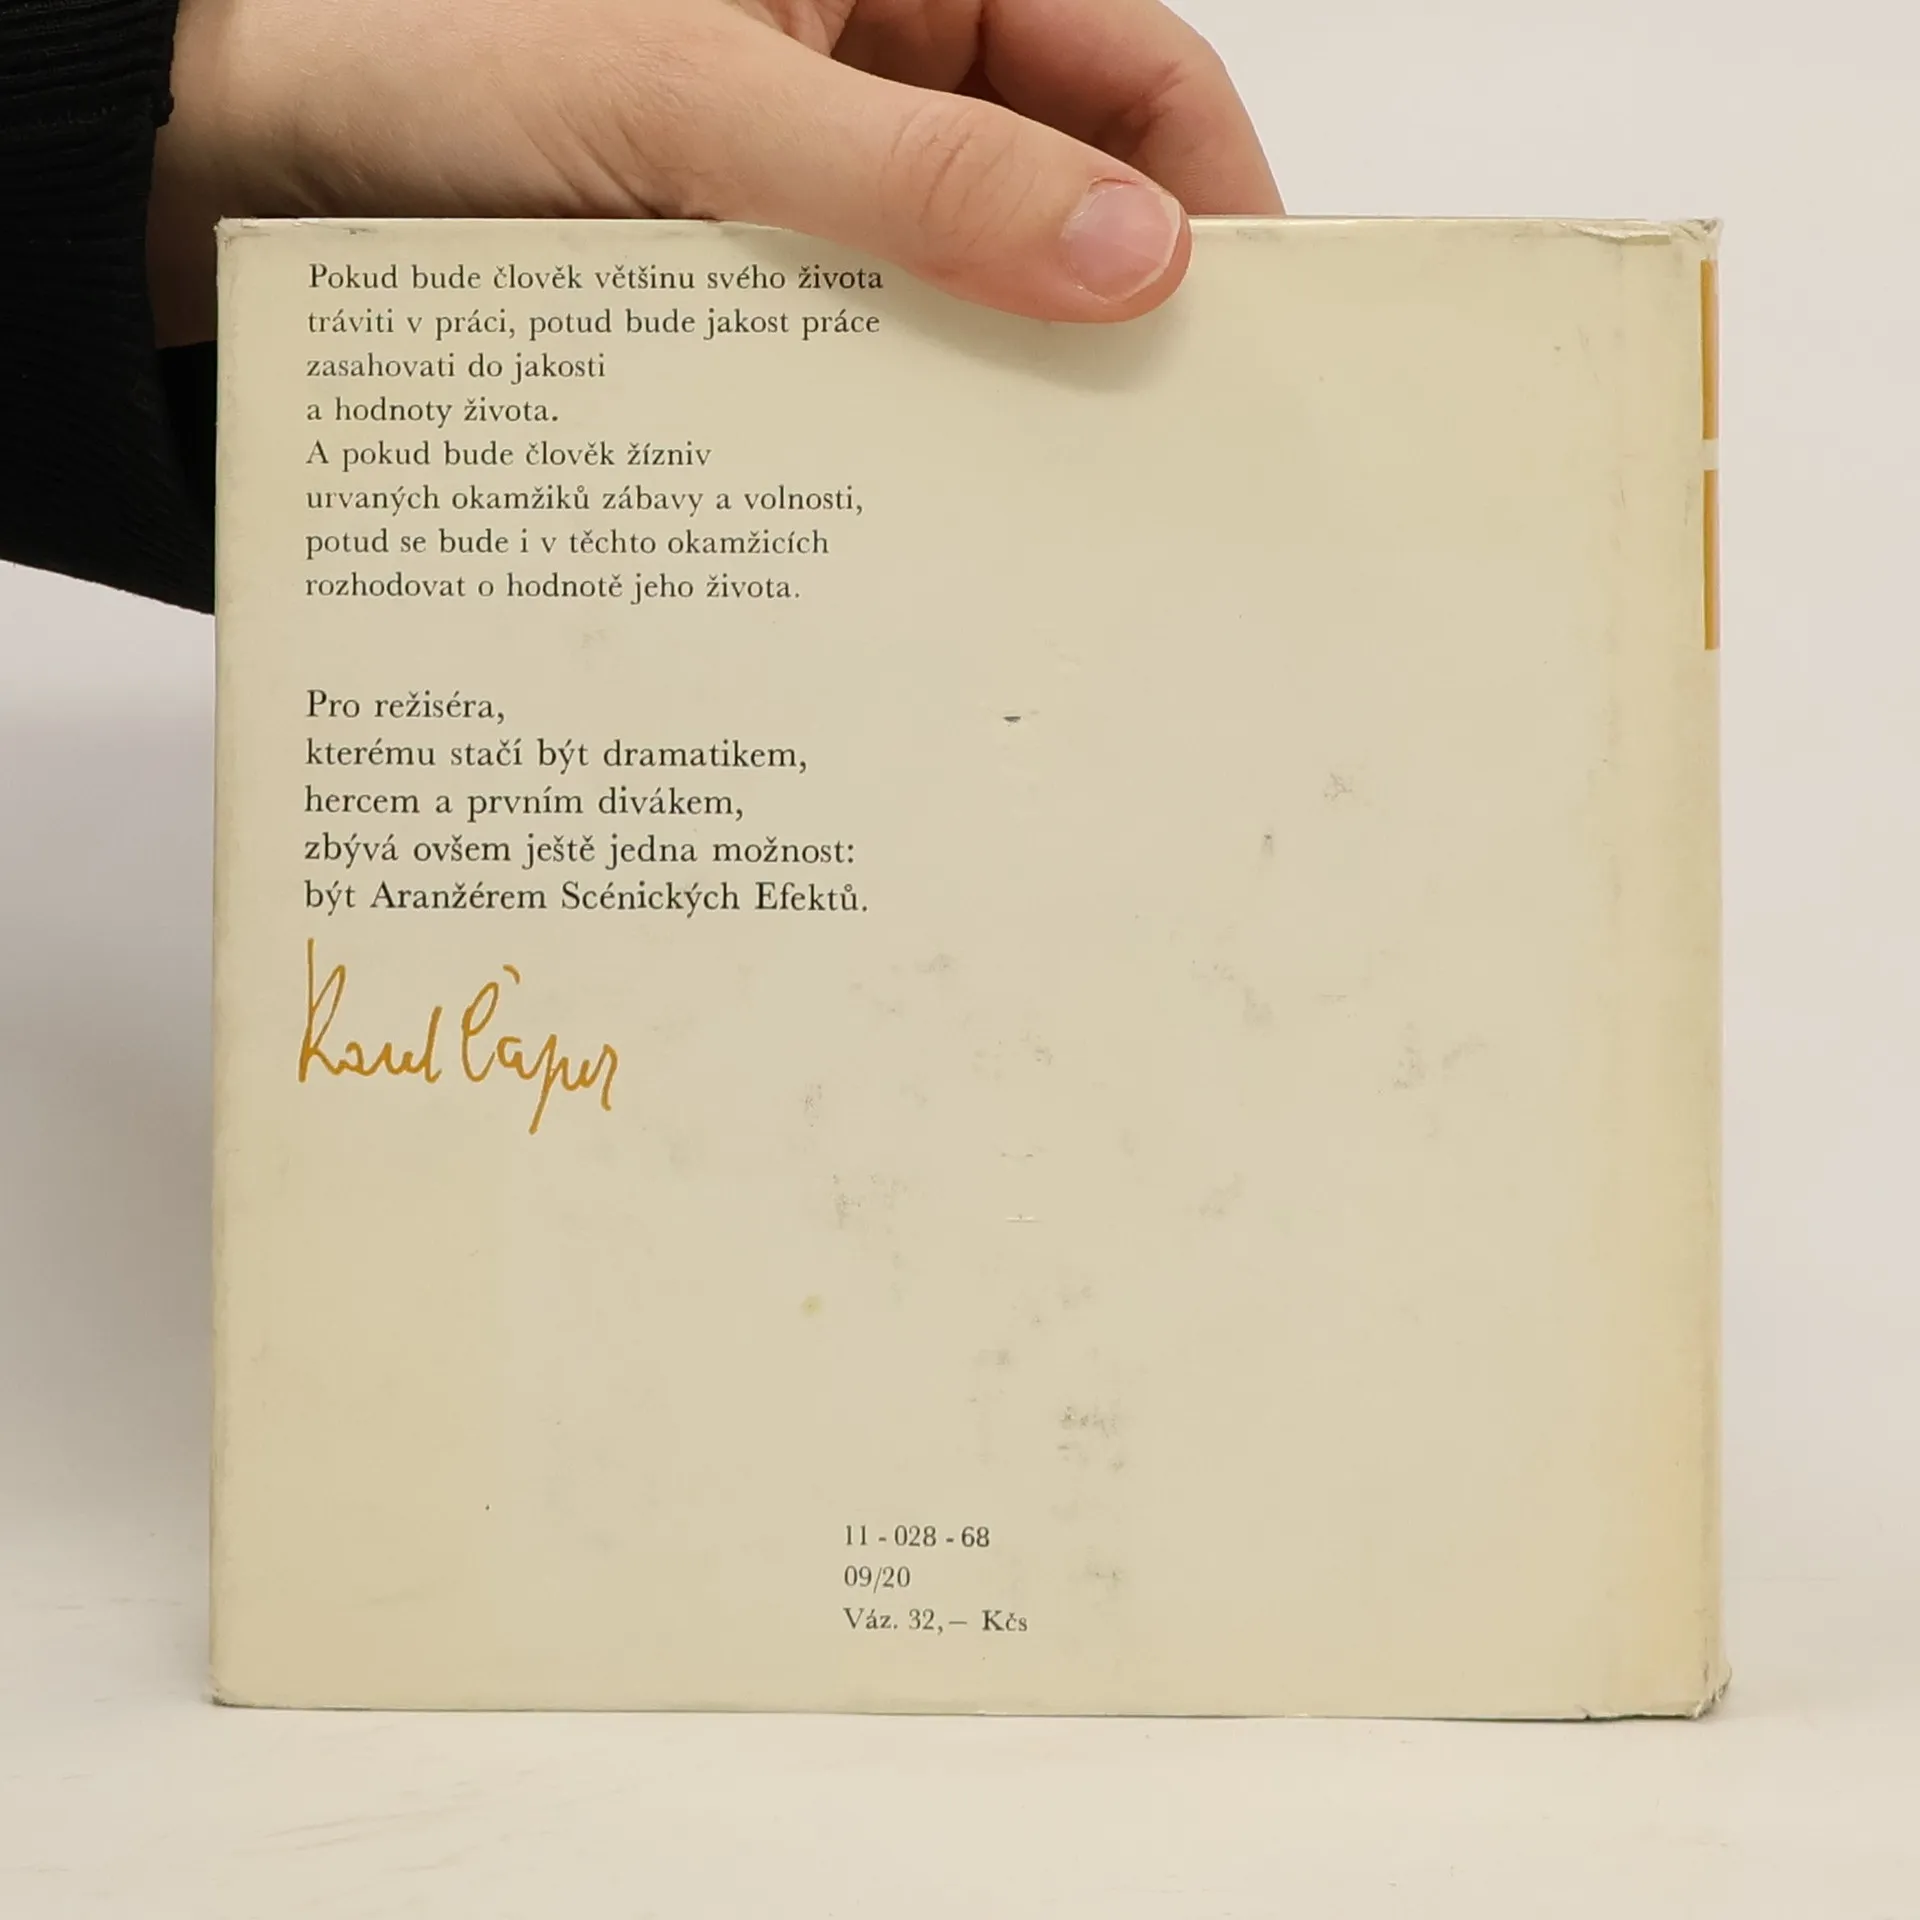 Pokud bude člověk většinu svého života
tráviti v práci, potud bude jakost práce
zasahovati do jakosti
a hodnoty života.
A pokud bude člověk žízniv
urvaných okamžiků zábavy a volnosti,
potud se bude i v těchto okamžicích
rozhodovat o hodnotě jeho života.
Pro režiséra,
kterému stačí být dramatikem,
hercem a prvním divákem,
zbývá ovšem ještě jedna možnost:
být Aranžérem Scénických Efektů.
Karel Čapek
11 - 028 - 68
09/20
Váz. 32,— Kčs